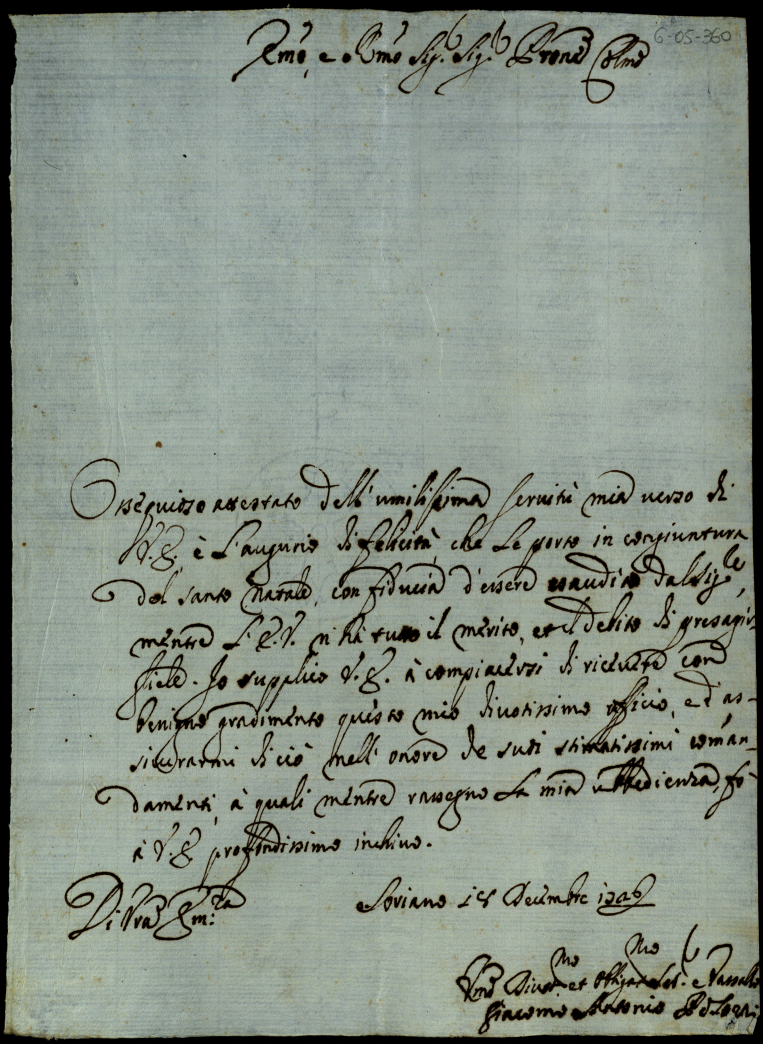 6-05-360
Emo, e Rmo Sig.r Sig.r Prone Colmo
Ossequioso attestato dell' umilissima servitù mia verso di
V. E. è l'augurio di felicità, che Le porto in congiuntura
del santo natale, con fiducia d'essere esaudito dal
mentre L'E.V. n'hà tutto il merito, et il debito di presagir-
Io supplico V. E. à compiacersi di ricevere con
benigno gradimento questo mio divotissimo officio, e d'as-
sicurarmi di ciò nell' onore de suoi stimatissimi coman-
damenti, à quali mentre rassegno La mia ubbedienza, fò
à V. E. profondissimo inchino.
Di Vra Em.za
Soriano 18 Decembre
Umo Divot.mo et Obbligat.mo e Vassallo
Giacomo Antonio